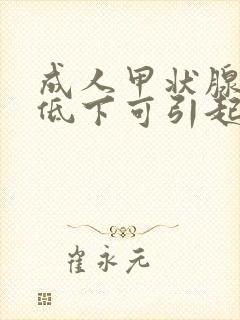 成人甲状腺
低下可引起
崔永元